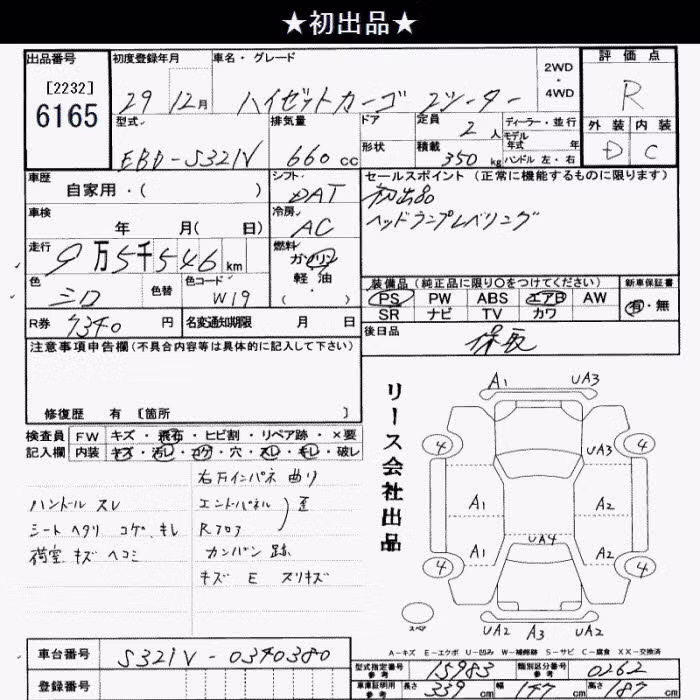 ★初出品★
出品番号
[2232]
6165
初度登録年月
29年12月
車名・グレード
ハイゼットカーゴ 2シーター
2WD
・
4WD
評価点
R
型式
EBD-S321V
排気量
660cc
ドア
形状
定員 2人
積載 350kg
ディーラー・並行
モデル
年式 年
ハンドル 左・右
外装 内装
D C
車歴
自家用・( )
シフト
DAT
セールスポイント (正常に機能するものに限ります)
初出品
ヘッドランプレベリング
車検
年 月( 日)
冷房
AC
走行
9万5千546km
燃料
ガソリン
軽・油
・( )
色
シロ
色替
色コード
W19
装備品 (純正品に限り○をつけてください)
PS PW ABS エアB AW
SR ナビ TV カワ
新車保証書
有・無
R券
7340円
名変通知期限 月 日
後日品
保取
注意事項申告欄(不具合内容等は具体的に記入して下さい)
修復歴 有 〔箇所 〕
検査員
記入欄
FW キズ・飛石・ヒビ割・リペア跡・×要
内装 キズ・汚レ・コゲ・穴・スレ・キレ・破レ
右リインパネ 曲り
ハンドル スレ
エンドパネル
Rフロア
歪
シート ヘタリ コゲ、キレ
荷室 キズ ヘコミ
カンバン 跡
キズ E スリキズ
リース会社出品
A1 UA3
4 4
UA3
A1 A2
UA4
A1 A2
4 4
スペア
UA2 A3 UA2
A-キズ E-エクボ U-凹み W-補修跡 S-サビ C-腐食 XX-交換済
車台番号
S321V-0340380
登録番号
型式指定番号
参考
15983
類別区分番号
参考
0262
車庫証明用
参考
長さ 339cm 幅 147cm 高さ 187cm